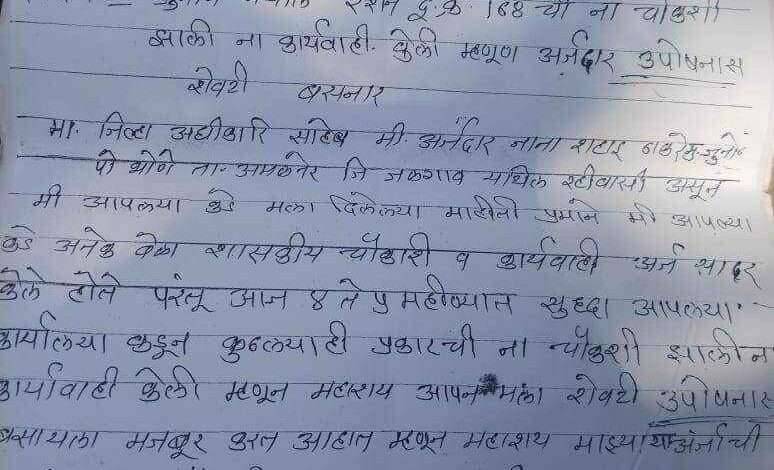 दु.क्र. 168 ची ना चौकशी
झाली ना कार्यवाही. केली म्हणुण अर्जदार उपोषनास
शेवटी बसनार
मा. जिल्हा अधीकारि साहेब मी. अर्जदार नाना
पो ता. अमळनेर जि जळगाव येथिल रहीवासी असून
मी आपल्या कडे मला दिलेल्या माहीती प्रमाने मी आपल्या
कडे अनेक वेळा शासकीय चौकशी व कार्यवाही अर्ज सादर
केले होते परंतू आज ४ ते ५ महीन्यात सुध्दा आपल्या
कार्यालया कडून कुठल्याही प्रकारची ना चौकशी झाली न
कार्यावाही केली म्हणून महाशय आपन मला शेवटी उपोषनास
बसायला मजबूर करत आहात म्हणून महाशय माझ्या अर्जाची